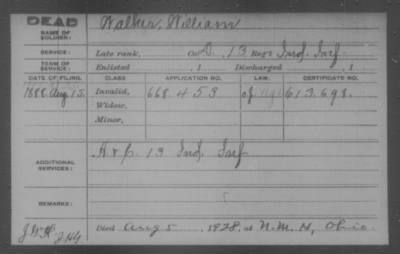 DEAD
NAME OF SOLDIER:
Walker, William
SERVICE:
Late rank, Co. D, 13 Reg't Ind. Inf.
TERM OF SERVICE:
Enlisted , 1 Discharged , 1
DATE OF FILING. CLASS. APPLICATION NO. LAW. CERTIFICATE NO.
1888 Aug 15. Invalid, 668.453 613.698.
Widow,
Minor,
ADDITIONAL SERVICES:
13 Ind. Inf
REMARKS:
Died Aug 5 1928, at N.M.H, Ohio.